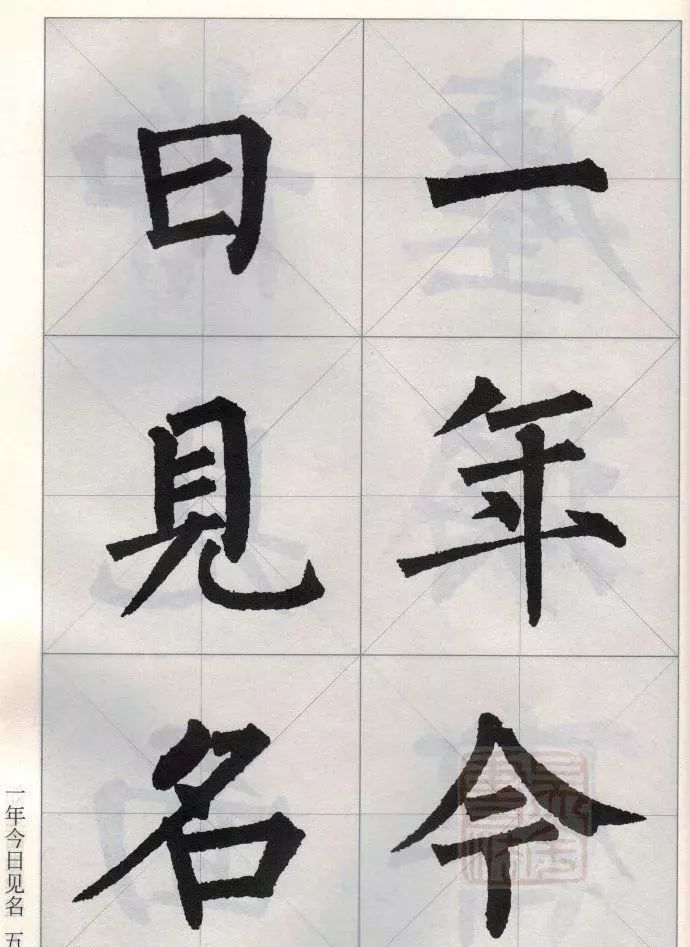 一年今
日見名
一年今日见名 五